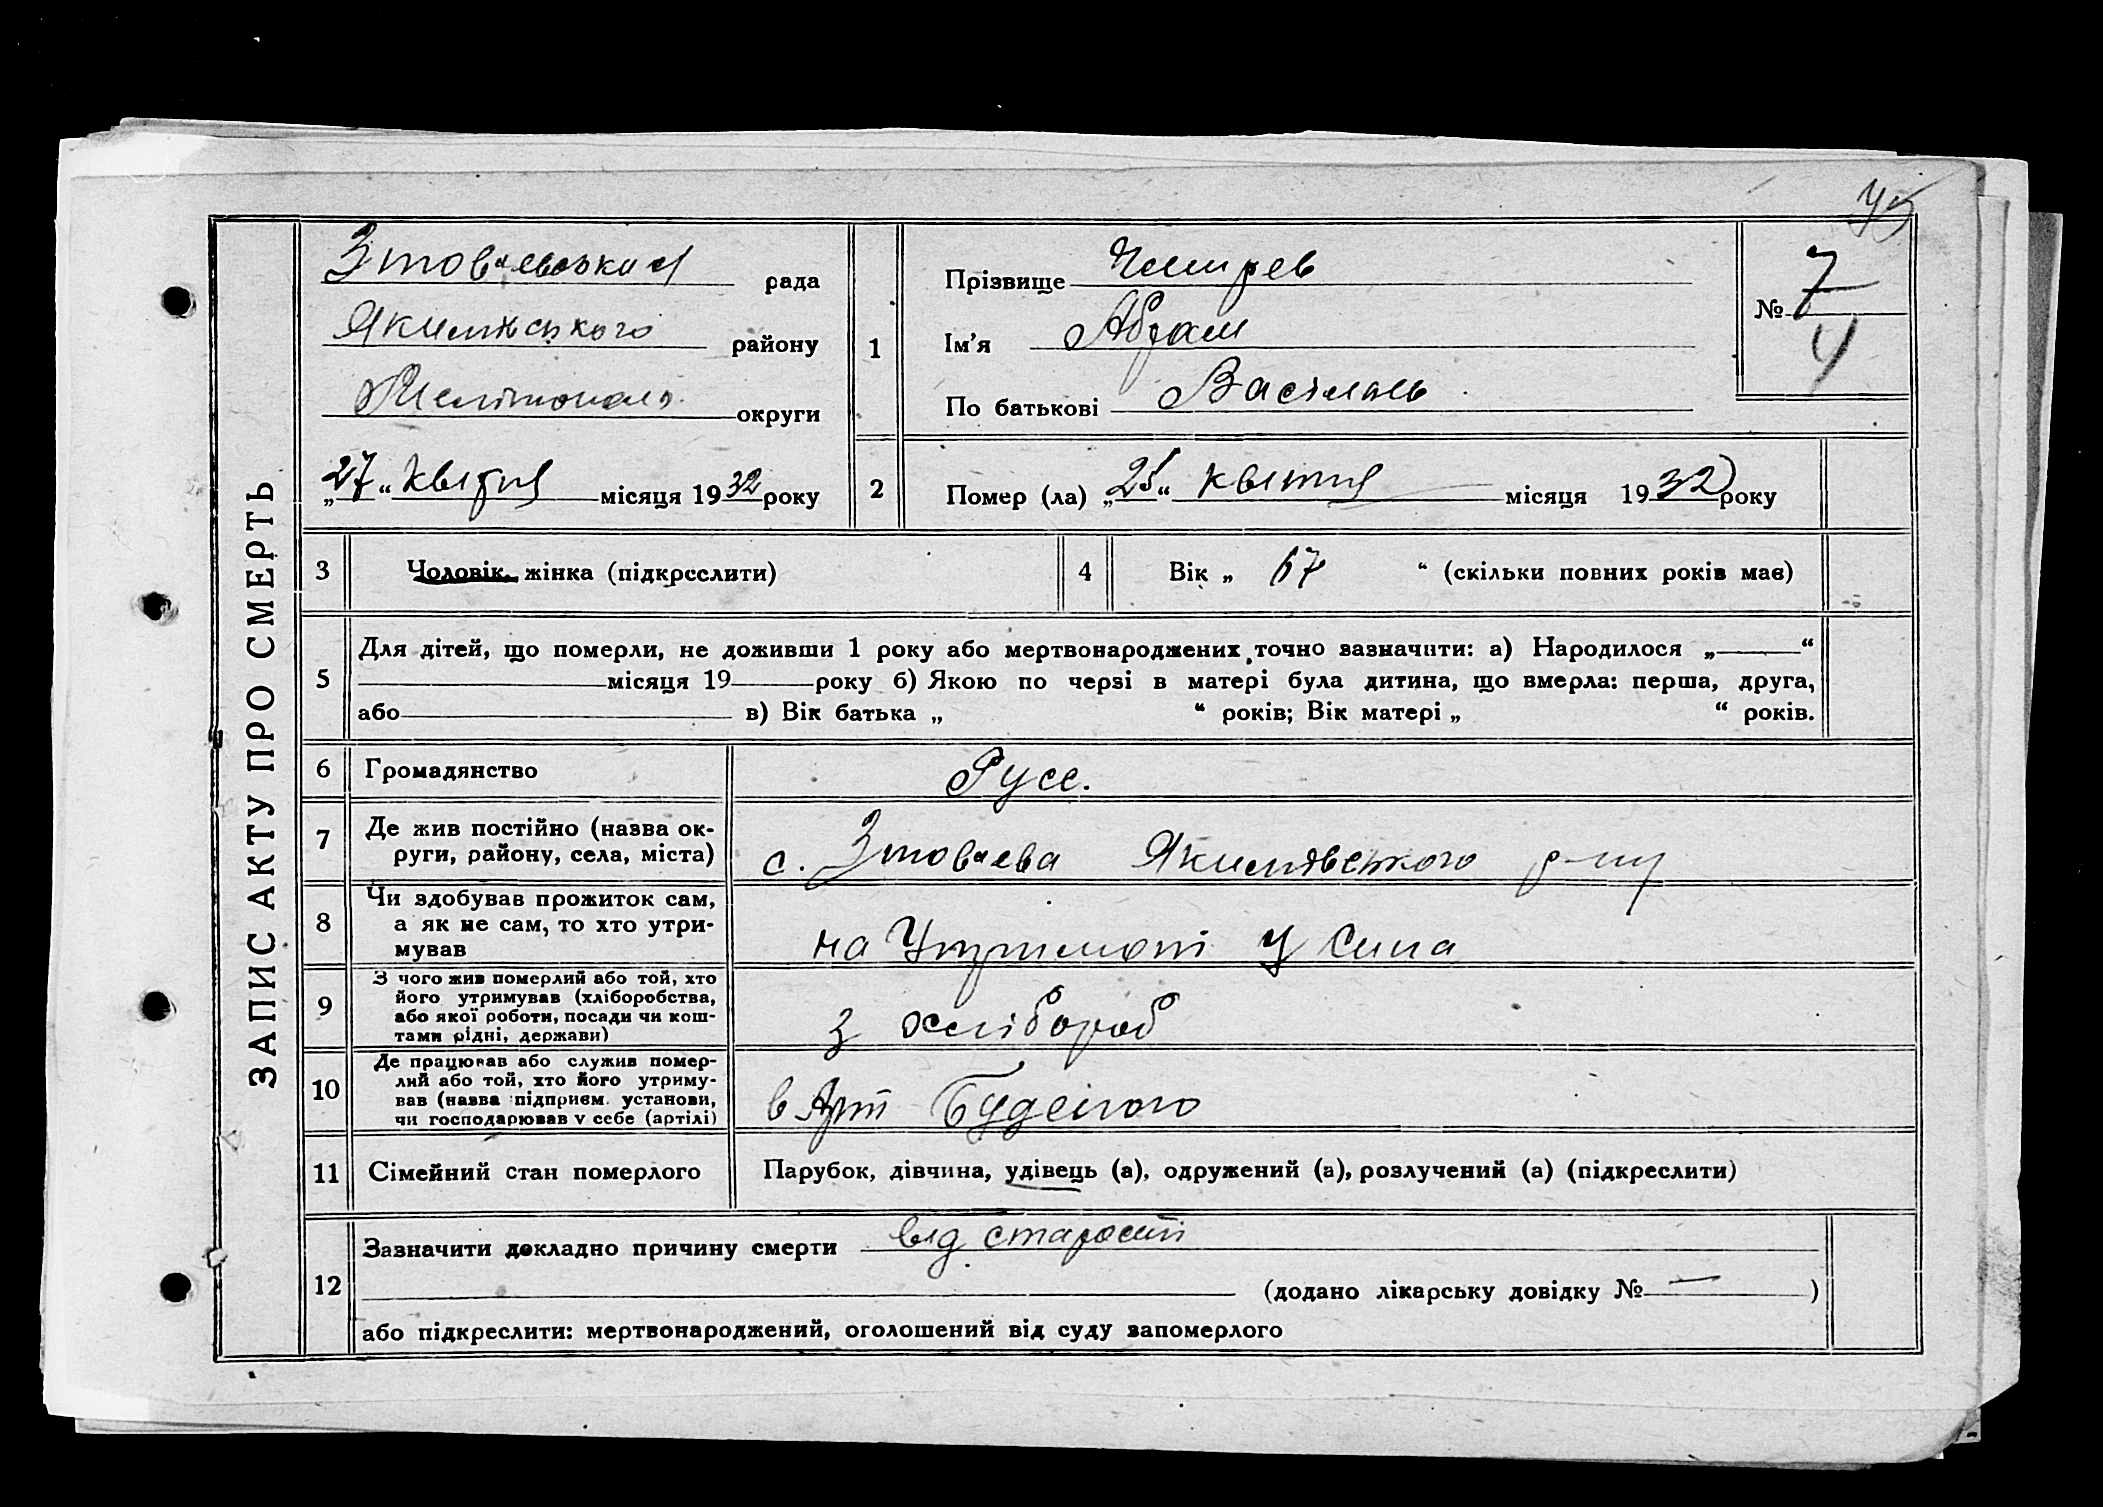 45
ЗАПИС АКТУ ПРО СМЕРТЬ
рада
Якимівського району
Мелітополь округи
„27“ квітня місяця 1932 року
1
Прізвище Чемирев
Ім'я Абрам
По батькові
№ 7
4
2
Помер (ла) „25“ квітня місяця 1932 року
3
Чоловік, жінка (підкреслити)
4
Вік „ 67 “ (скільки повних років має)
5
Для дітей, що померли, не доживши 1 року або мертвонароджених точно зазначити: а) Народилося „——“
місяця 19 року б) Якою по черзі в матері була дитина, що вмерла: перша, друга,
або в) Вік батька „ “ років; Вік матері „ “ років.
6
Громадянство
Русс.
7
Де жив постійно (назва ок-
руги, району, села, міста)
с. Якимівського р-ну
8
Чи здобував прожиток сам,
а як не сам, то хто утри-
мував
на Утримані У Сина
9
З чого жив померлий або той, хто
його утримував (хліборобства,
або якої роботи, посади чи кош-
тами рідні, держави)
з хлібороб
10
Де працював або служив помер-
лий або той, хто його утриму-
вав (назва підприєм. установи,
чи господарював у себе (артілі)
в Арт Буденого
11
Сімейний стан померлого
Парубок, дівчина, удівець (а), одружений (а), розлучений (а) (підкреслити)
12
Зазначити докладно причину смерти від старости
(додано лікарську довідку № — )
або підкреслити: мертвонароджений, оголошений від суду запомерлого